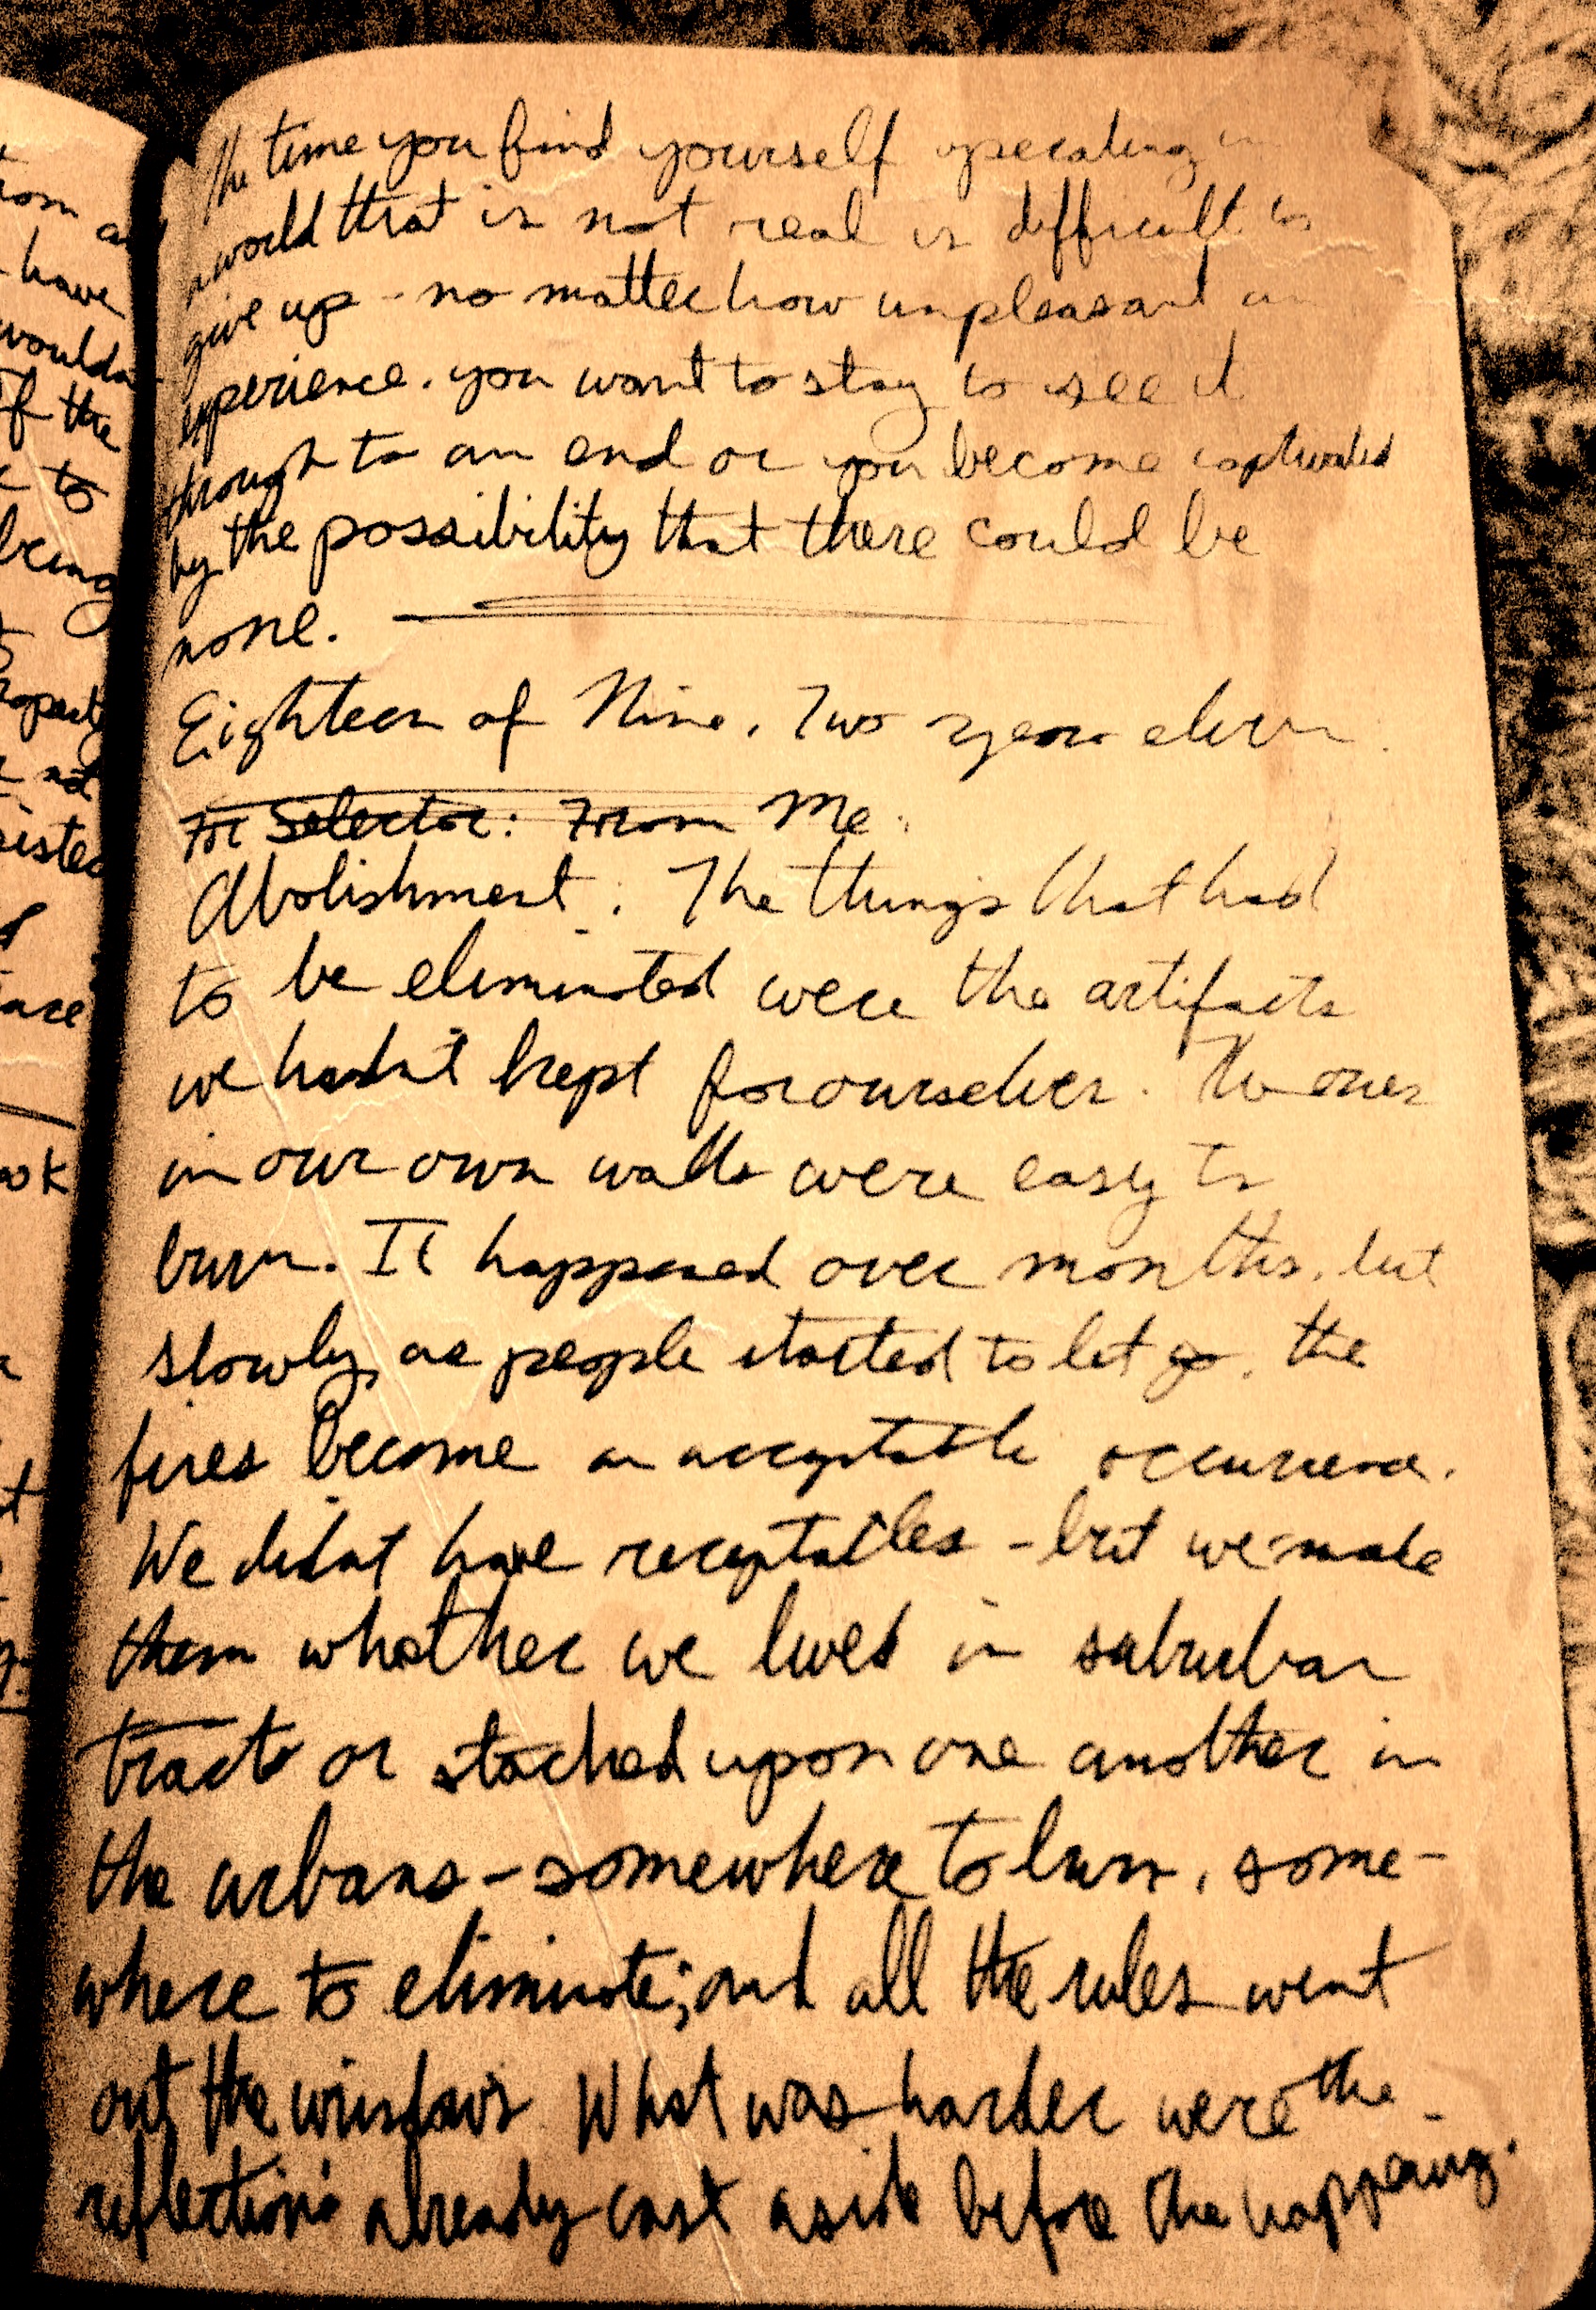 om a
have
would
of the
to
being
not
ook
The time you find yourself operating in
a world that is not real is difficult to
give up - no matter how unpleasant an
experience. you want to stay to see it
through to an end or you become captivated
by the possibility that there could be
none.
Eighteen of Nine. Two year eleven.
For Selector: From Me.
Abolishment: The things that had
to be eliminated were the artifacts
we hadn't kept for ourselves. The ones
in our own walls were easy to
burn. It happened over months, but
slowly, as people started to let go, the
fires become an acceptable occurrence.
We didnt have receptacles - but we made
them whether we lived in suburban
tracts or stacked upon one another in
the urbans - somewhere to burn, some-
where to eliminate; and all the rules went
out the window. What was harder were the
reflections already cast aside before the happening.